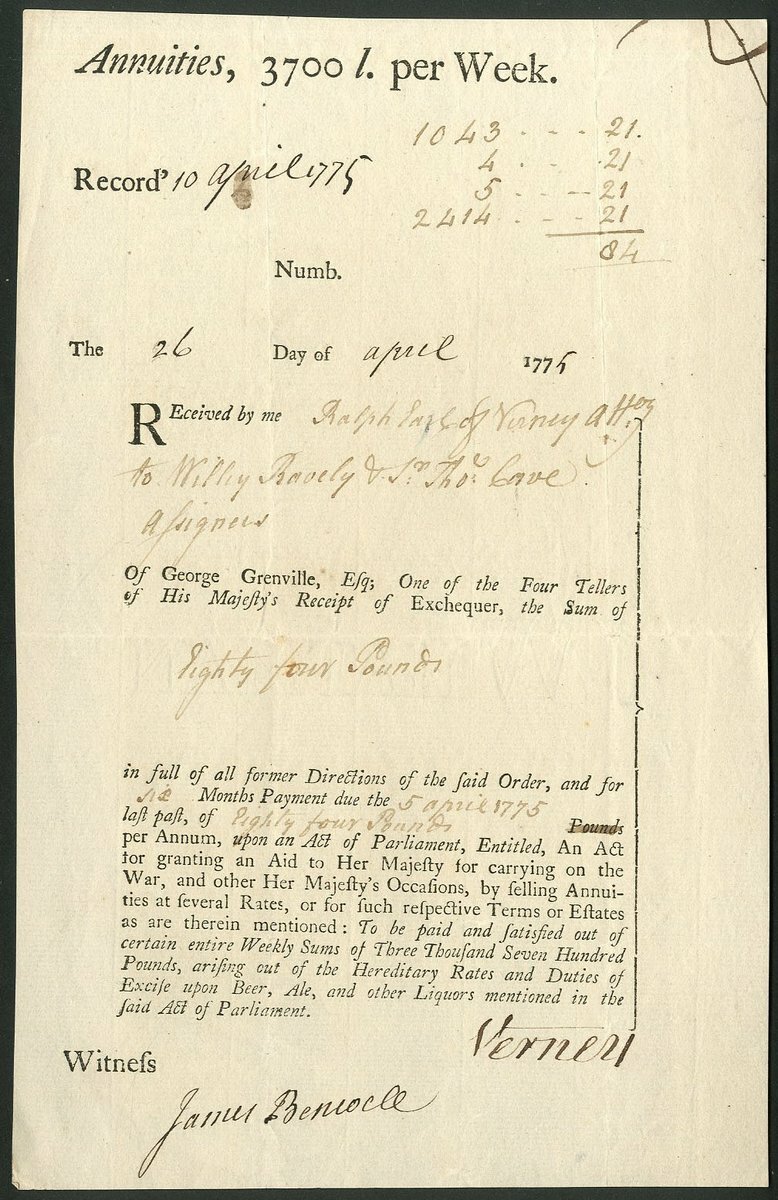 Annuities, 3700 l. per Week.
1043 - - - 21.
4 - - 21
Record' 10 april 1775
5 - - - 21
2414 - - - 21
84
Numb.
The 26 Day of april 1775
REceived by me Ralph Earl of Verney Attoy
to Willey Ravely & Sr. Thos. Cave
Assignees
Of George Grenville, Eſq; One of the Four Tellers
of His Majeſty's Receipt of Exchequer, the Sum of
Eighty four Pounds
in full of all former Directions of the ſaid Order, and for
six Months Payment due the 5 april 1775
laſt paſt, of Eighty four Pounds Pounds
per Annum, upon an Act of Parliament, Entitled, An Act
for granting an Aid to Her Majeſty for carrying on the
War, and other Her Majeſty's Occaſions, by ſelling Annui-
ties at ſeveral Rates, or for ſuch reſpective Terms or Eſtates
as are therein mentioned: To be paid and ſatisfied out of
certain entire Weekly Sums of Three Thouſand Seven Hundred
Pounds, ariſing out of the Hereditary Rates and Duties of
Exciſe upon Beer, Ale, and other Liquors mentioned in the
ſaid Act of Parliament.
Verney
Witneſs
James